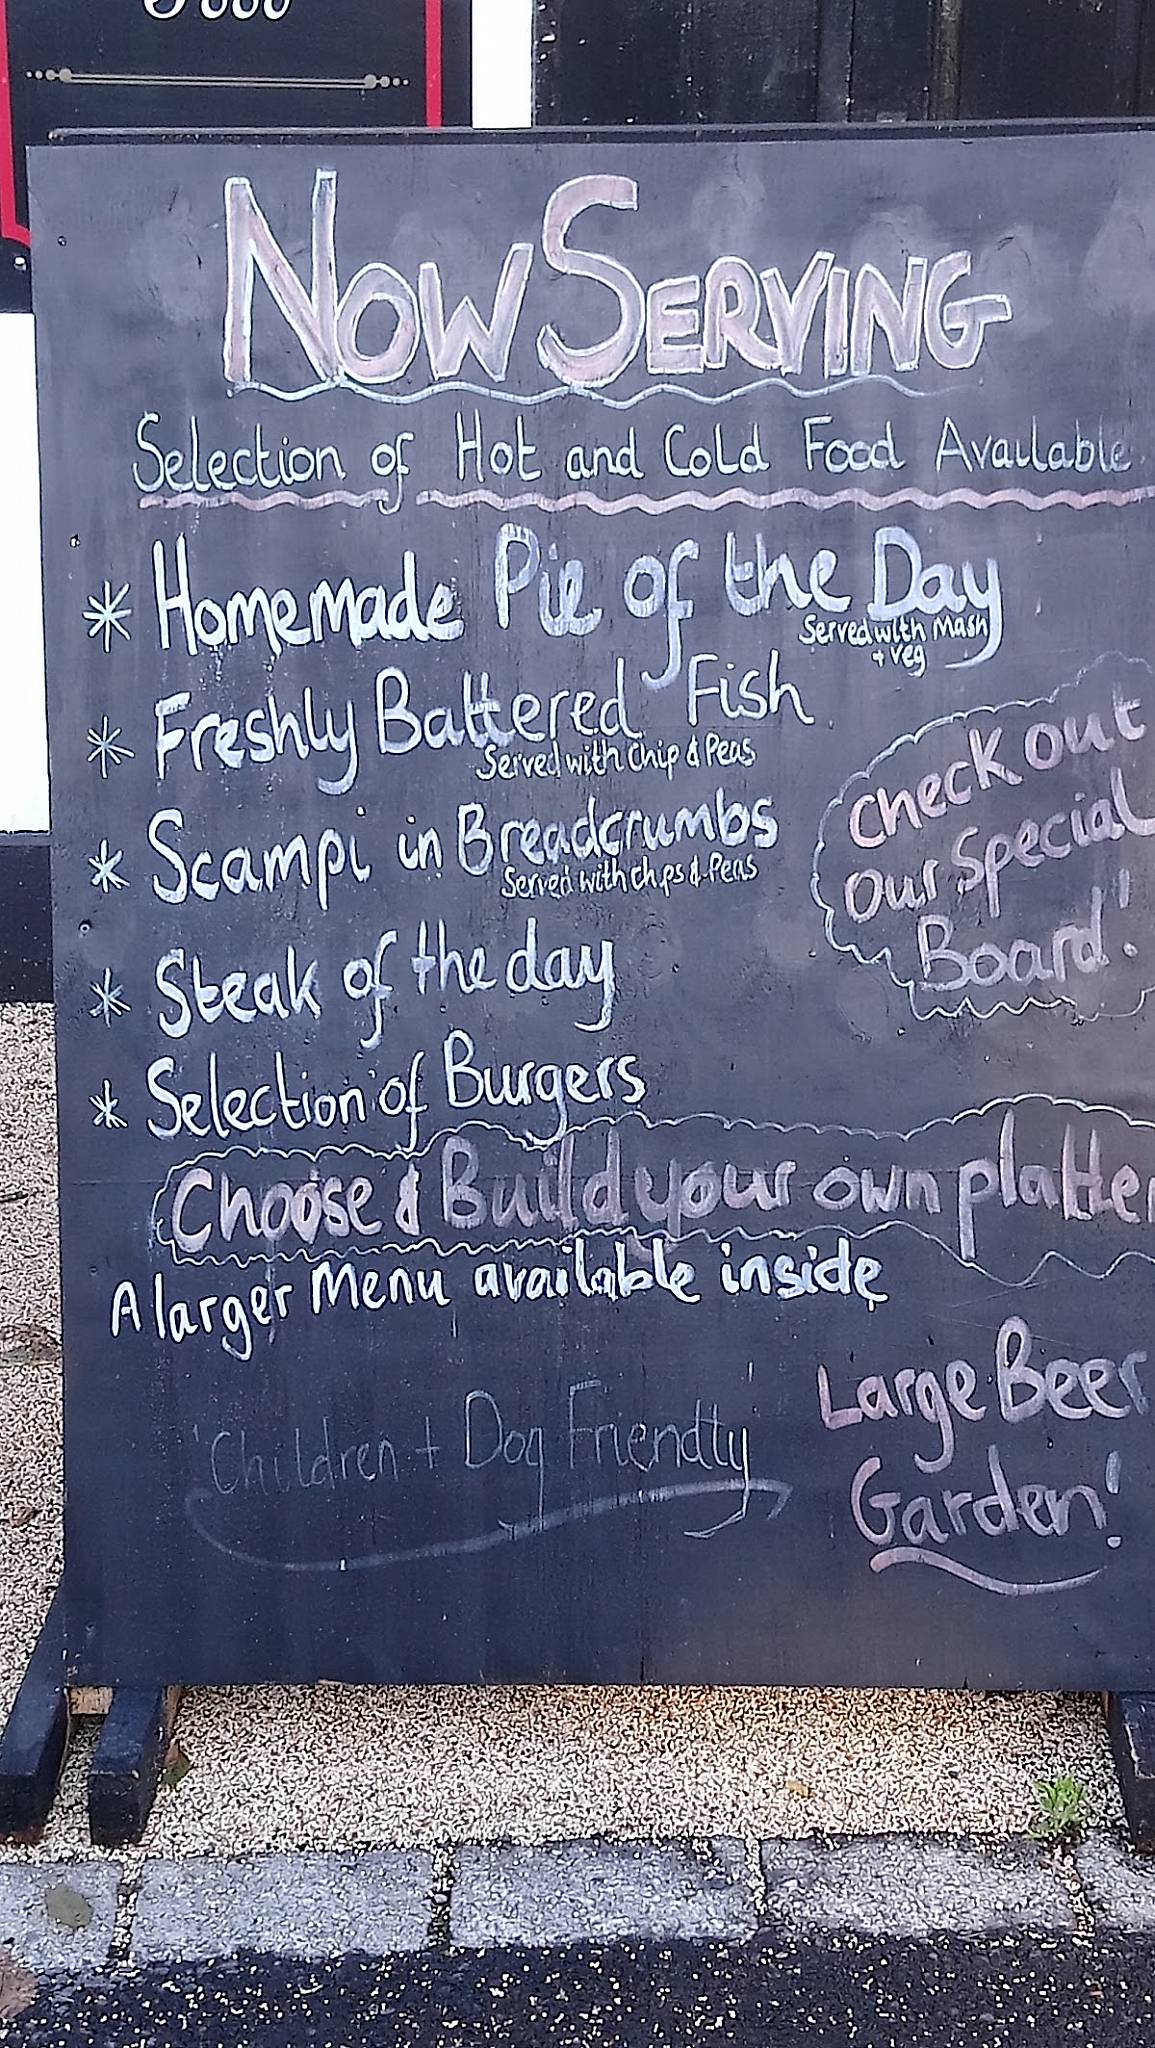 Food
Now Serving
Selection of Hot and Cold Food Available
* Homemade Pie of the Day
Served with Mash
+ Veg
* Freshly Battered Fish
Served with Chip & Peas
* Scampi in Breadcrumbs
Served with chips & Peas
Check out
our Special
Board!
* Steak of the day
* Selection of Burgers
Choose & Build your own platter
A larger Menu available inside
'Children + Dog Friendly'
Large Beer
Garden!